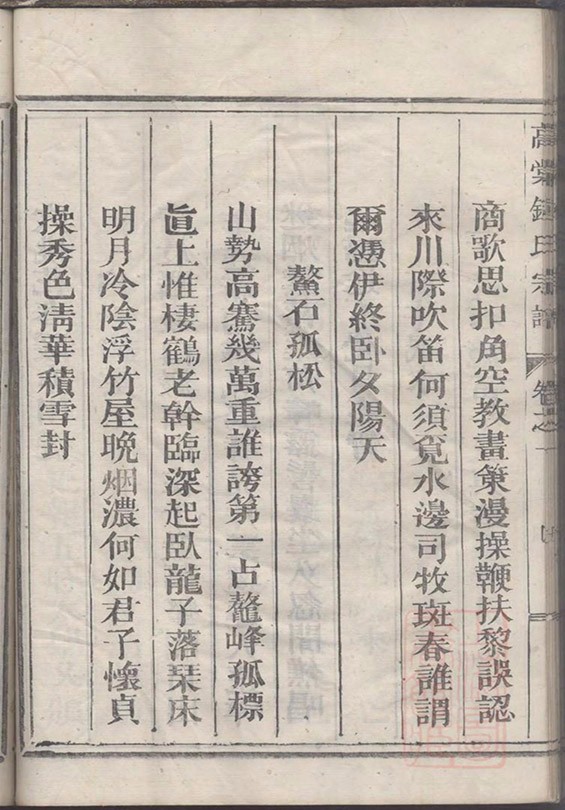 商歌思扣角空教畫策漫操鞭扶黎誤認
來川際吹笛何須覓水邊司牧斑春誰謂
爾憑伊終卧夕陽天
鰲石孤松
山勢高騫幾萬重誰誇第一占鰲峰孤標
眞上惟棲鶴老幹臨深起臥龍子落棊床
明月冷陰浮竹屋晩烟濃何如君子懷貞
操秀色淸華積雪封
氏宗譜